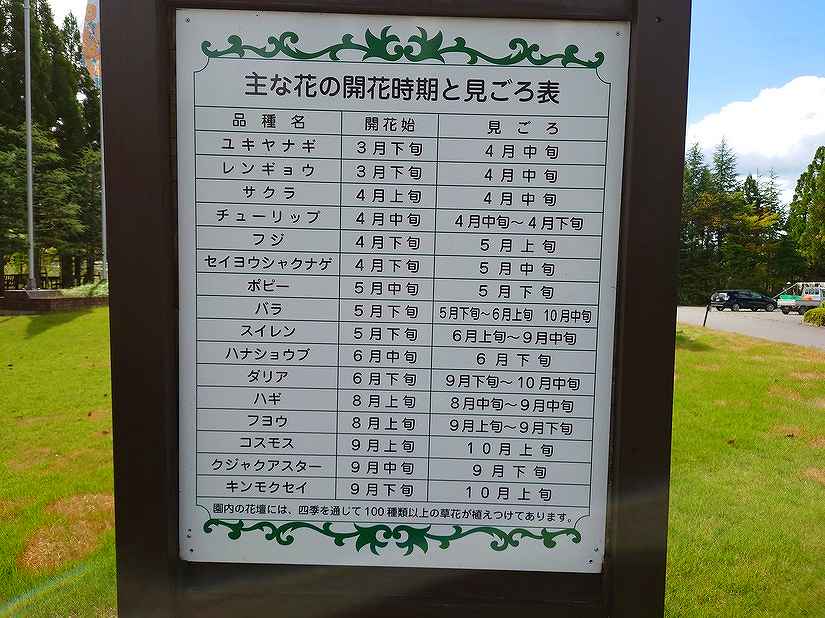 主な花の開花時期と見ごろ表
品種名 開花始 見ごろ
ユキヤナギ 3月下旬 4月中旬
レンギョウ 3月下旬 4月中旬
サクラ 4月上旬 4月中旬
チューリップ 4月中旬 4月中旬～4月下旬
フジ 4月下旬 5月上旬
セイヨウシャクナゲ 4月下旬 5月中旬
ポピー 5月中旬 5月下旬
バラ 5月下旬 5月下旬～6月上旬 10月中旬
スイレン 5月下旬 6月上旬～9月中旬
ハナショウブ 6月中旬 6月下旬
ダリア 6月下旬 9月下旬～10月中旬
ハギ 8月上旬 8月中旬～9月中旬
フヨウ 8月上旬 9月上旬～9月下旬
コスモス 9月上旬 10月上旬
クジャクアスター 9月中旬 9月下旬
キンモクセイ 9月下旬 10月上旬
園内の花壇には、四季を通じて100種類以上の草花が植えつけてあります。